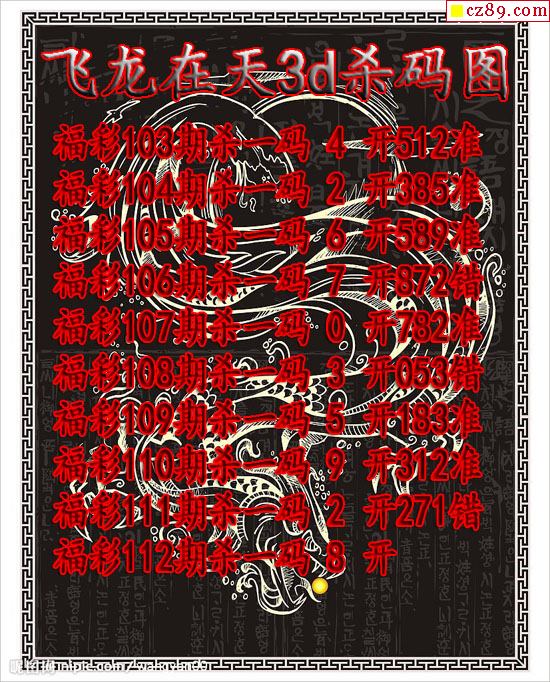 cz89.com
飞龙在天3d杀码图
福彩103期杀一码 4 开512准
福彩104期杀一码 2 开385准
福彩105期杀一码 6 开589准
福彩106期杀一码 7 开872错
福彩107期杀一码 0 开782准
福彩108期杀一码 3 开053错
福彩109期杀一码 5 开183准
福彩110期杀一码 9 开312准
福彩111期杀一码 2 开271错
福彩112期杀一码 8 开